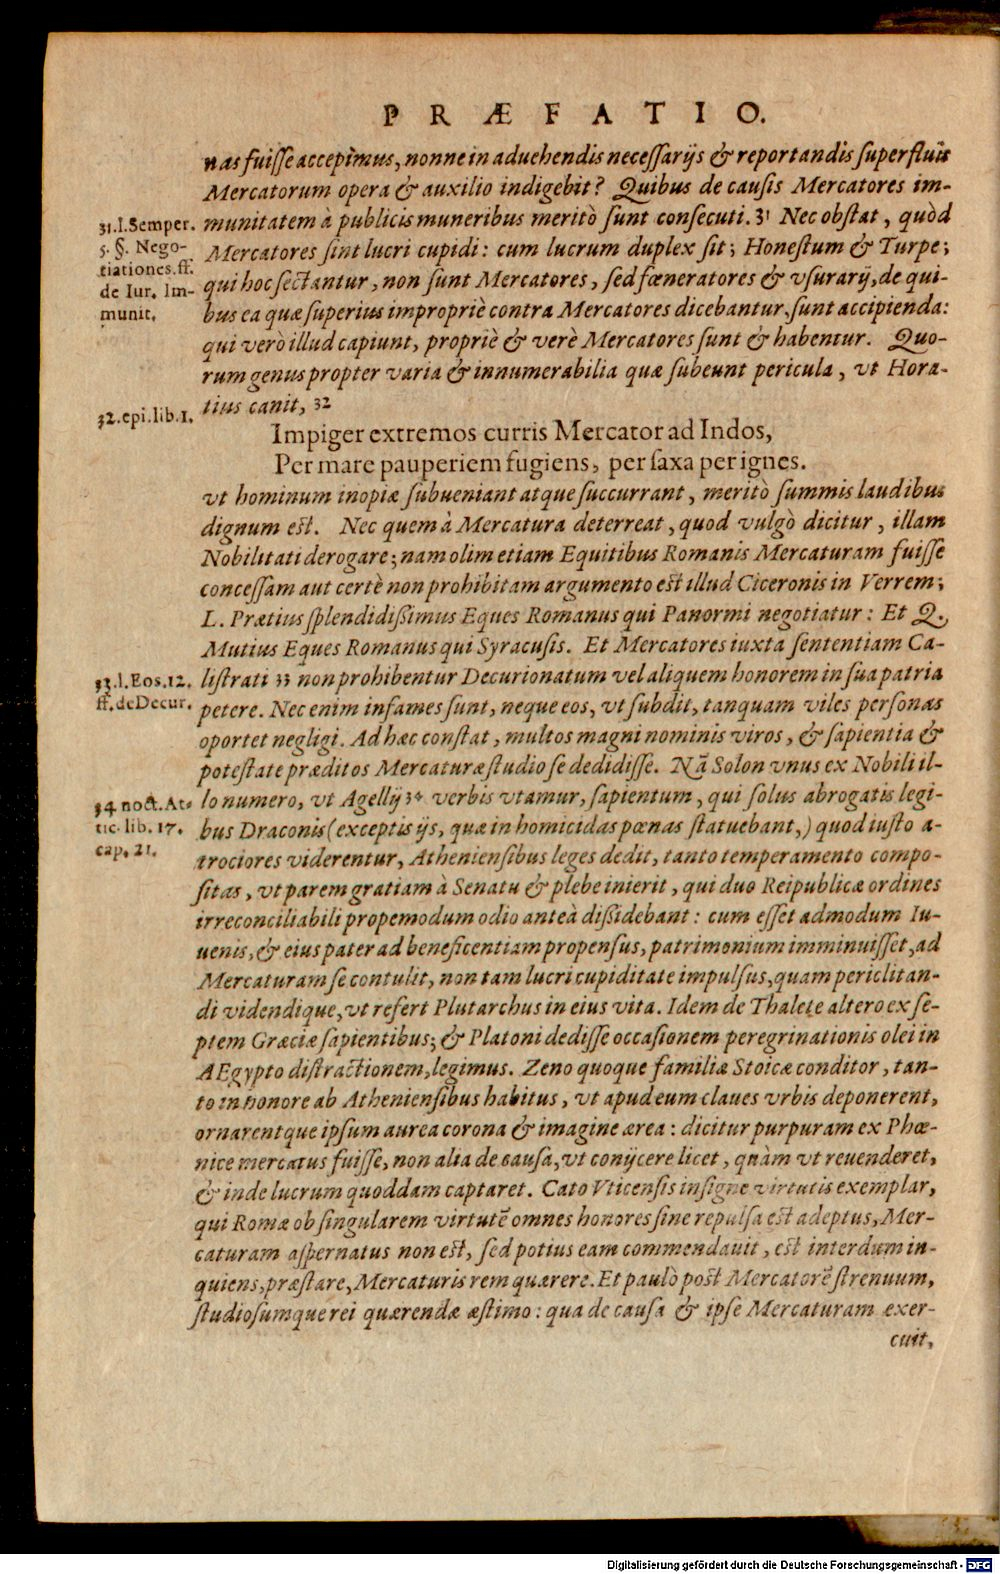 PRÆFATIO.
nas fuiſſe accepimus, nonne in aduehendis neceſſarijs & reportandis ſuperfluis
Mercatorum opera & auxilio indigebit? Quibus de cauſis Mercatores im-
munitatem à publicis muneribus meritò ſunt conſecuti. 31 Nec obſtat, quòd
Mercatores ſint lucri cupidi: cum lucrum duplex ſit; Honeſtum & Turpe;
qui hoc ſectantur, non ſunt Mercatores, ſed fœneratores & vſurarij, de qui-
bus ea quæ ſuperius impropriè contra Mercatores dicebantur, ſunt accipienda:
qui verò illud capiunt, propriè & verè Mercatores ſunt & habentur. Quo-
rum genus propter varia & innumerabilia quæ ſubeunt pericula, vt Hora-
tius canit, 32
Impiger extremos curris Mercator ad Indos,
Per mare pauperiem fugiens, per ſaxa per ignes.
vt hominum inopiæ ſubueniant atque ſuccurrant, meritò ſummis laudibus
dignum eſt. Nec quem à Mercatura deterreat, quod vulgò dicitur, illam
Nobilitati derogare; nam olim etiam Equitibus Romanis Mercaturam fuiſſe
conceſſam aut certè non prohibitam argumento eſt illud Ciceronis in Verrem;
L. Prætius ſplendidiſſimus Eques Romanus qui Panormi negotiatur: Et Q.
Mutius Eques Romanus qui Syracuſis. Et Mercatores iuxta ſententiam Ca-
liſtrati 33 non prohibentur Decurionatum vel aliquem honorem in ſua patria
petere. Nec enim infames ſunt, neque eos, vt ſubdit, tanquam viles perſonas
oportet negligi. Ad hæc conſtat, multos magni nominis viros, & ſapientia &
poteſtate præditos Mercaturæ ſtudio ſe dedidiſſe. Nā Solon vnus ex Nobili il-
lo numero, vt Agellij 34 verbis vtamur, ſapientum, qui ſolus abrogatis legi-
bus Draconis (exceptis ijs, quæ in homicidas pœnas ſtatuebant,) quod iuſto a-
trociores viderentur, Athenienſibus leges dedit, tanto temperamento compo-
ſitas, vt parem gratiam à Senatu & plebe inierit, qui duo Reipublicæ ordines
irreconciliabili propemodum odio anteà diſſidebant: cum eſſet admodum Iu-
uenis, & eius pater ad beneficentiam propenſus, patrimonium imminuiſſet, ad
Mercaturam ſe contulit, non tam lucri cupiditate impulſus, quam periclitan-
di videndique, vt refert Plutarchus in eius vita. Idem de Thalete altero ex ſe-
ptem Græciæ ſapientibus; & Platoni dediſſe occaſionem peregrinationis olei in
AEgypto diſtractionem, legimus. Zeno quoque familiæ Stoicæ conditor, tan-
to in honore ab Athenienſibus habitus, vt apud eum claues vrbis deponerent,
ornarentque ipſum aurea corona & imagine ærea: dicitur purpuram ex Phœ-
nice mercatus fuiſſe, non alia de cauſa, vt conijcere licet, quàm vt reuenderet,
& inde lucrum quoddam captaret. Cato Vticenſis inſigne virtutis exemplar,
qui Romæ ob ſingularem virtutē omnes honores ſine repulſa eſt adeptus, Mer-
caturam aſpernatus non eſt, ſed potius eam commendauit, eſt interdum in-
quiens, præſtare, Mercaturis rem quærere. Et paulò poſt Mercatorē ſtrenuum,
ſtudioſumque rei quærendæ æſtimo: qua de cauſa & ipſe Mercaturam exer-
cuit,
31. l. Semper.
5. §. Nego-
tiationes. ff.
de Iur. Im-
munit.
32. epi. lib. 1.
33. l. Eos. 12.
ff. de Decur.
34 noct. At-
tic. lib. 17.
cap. 21.
Digitalisierung gefördert durch die Deutsche Forschungsgemeinschaft - DFG